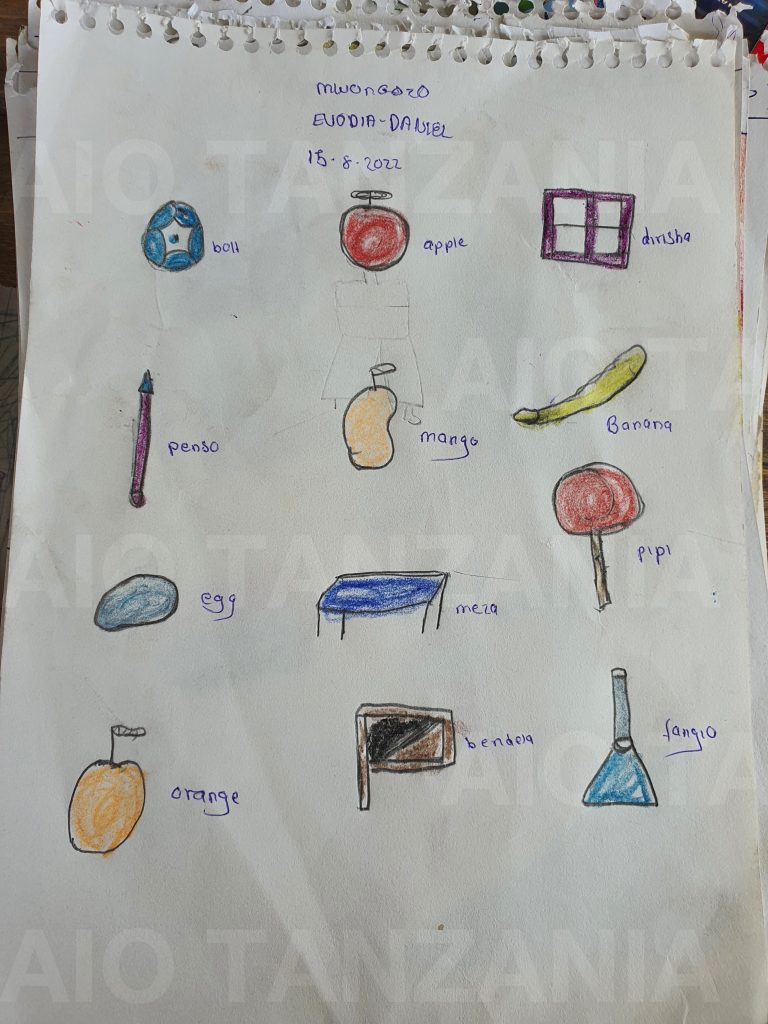 MWONGOZO
EVODIA-DANIEL
15.8.2022
boll
apple
dirisha
penso
mango
Banana
pipi
egg
meza
fangio
bendela
orange
AIO TANZANIA
AIO TANZANIA
AIO TANZANIA
AIO TANZANIA
AIO TANZANIA